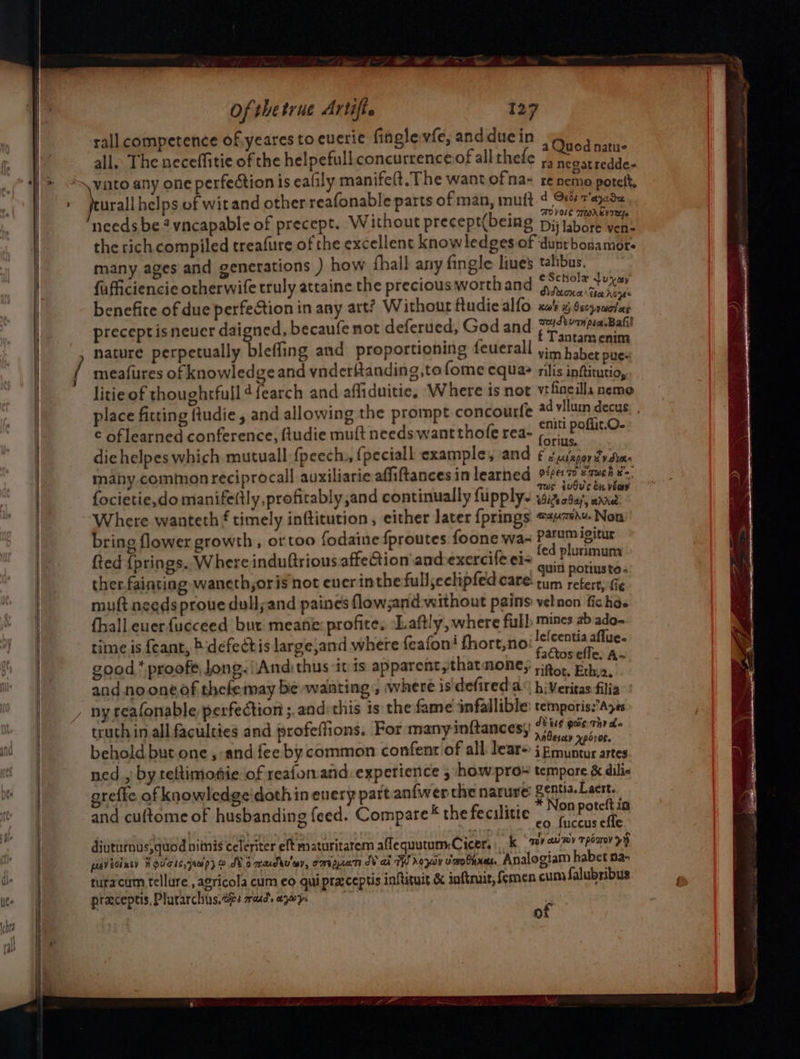 Of the true Artist. 127
rall competence of yeares to euerie single vse, and due in
all. The necessitie of the helpefull concurrence of all these
vnto any one perfection is easily manifest. The want of na-
turall helps of wit and other reasonable parts of man, must
needs be ᵃ vncapable of precept. Without precept (being
the rich compiled treasure of the excellent knowledges of
many ages and generations) how shall any single liues
sufficiencie otherwise truly attaine the precious worth and
benefite of due perfection in any art? Without studie also
precept is neuer daigned, because not deserued, God and
nature perpetually blessing and proportioning seuerall
measures of knowledge and vnderstanding, to some equa-
litie of thoughtfull ᵈ search and assiduitie. Where is not
place fitting studie, and allowing the prompt concourse
ᵉ of learned conference, studie must needs want those rea-
die helpes which mutuall speech, speciall example, and
many common reciprocall auxiliarie assistances in learned
societie, do manifestly, profitably, and continually supply.
Where wanteth ᶠ timely institution, either later springs
bring flower growth, or too sodaine sproutes soone wa-
sted springs. Where industrious affection and exercise ei-
ther fainting waneth, or is not euer in the full, eclipsed care
must needs proue dull, and paines slow, and without pains
shall euer succeed but meane profite. Lastly, where full
time is scant, ʰ defect is large, and where season ⁱ short, no
good * proofe, long. And thus it is apparent, that none,
and no one of these may be wanting, where is desired a
ny reasonable perfection; and this is the same infallible
truth in all faculties and professions. For many instances,
behold but one, and see by common consent of all lear-
ned, by testimonie of reason and experience, how pro-
gresse of knowledge doth in euery part answer the nature
and custome of husbanding seed. Compare ᵏ the fecilitie
ᵃ Quod natu-
ra negat redde-
re nemo potest,
Dij labore ven-
dunt bona mor-
talibus.
ᵉ Schola
Basil
ᶠ Tantam enim
vim habet pue-
rilis institutio,
vt sine illa nemo
ad vllum decus
eniti possit. O-
sorius.
Non
parum igitur
sed plurimum
quin potius to-
tum refert, sic
vel non sic ho-
mines ab ado-
lescentia assue-
factos esse. A-
ristot. Eth. 2.
h. Veritas filia
temporis
i Emuntur artes
tempore & dili-
gentia. Laert.
* Non potest in
eo succus esse
diuturnus, quod nimis celeriter est maturitatem assequutum. Cicer. k
Analogiam habet na-
tura cum tellure, agricola cum eo qui præceptis instituit & instruit, semen cum salubribus
præceptis, Plutarchus.
of